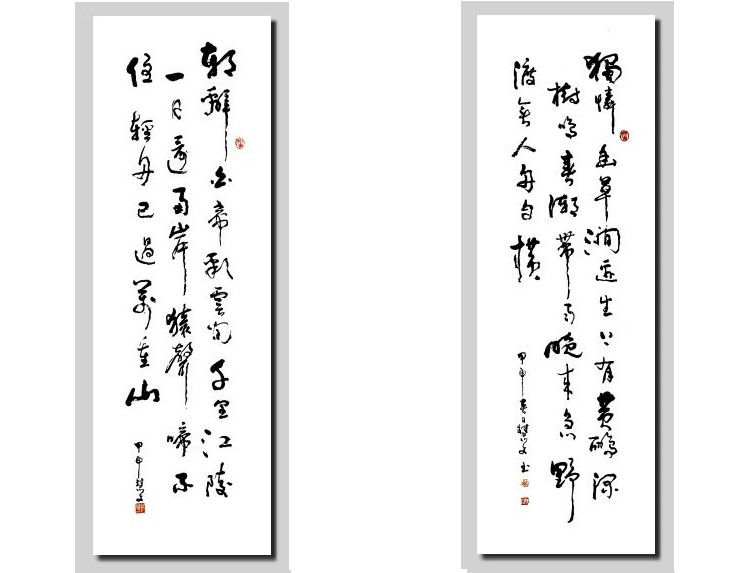 朝辭白帝彩雲間千里江陵
一日還兩岸猿聲啼不
住輕舟已過萬重山
甲申
獨憐幽草澗邊生上有黃鸝深
樹鳴春潮帶雨晚來急野
渡無人舟自橫
甲申春日書